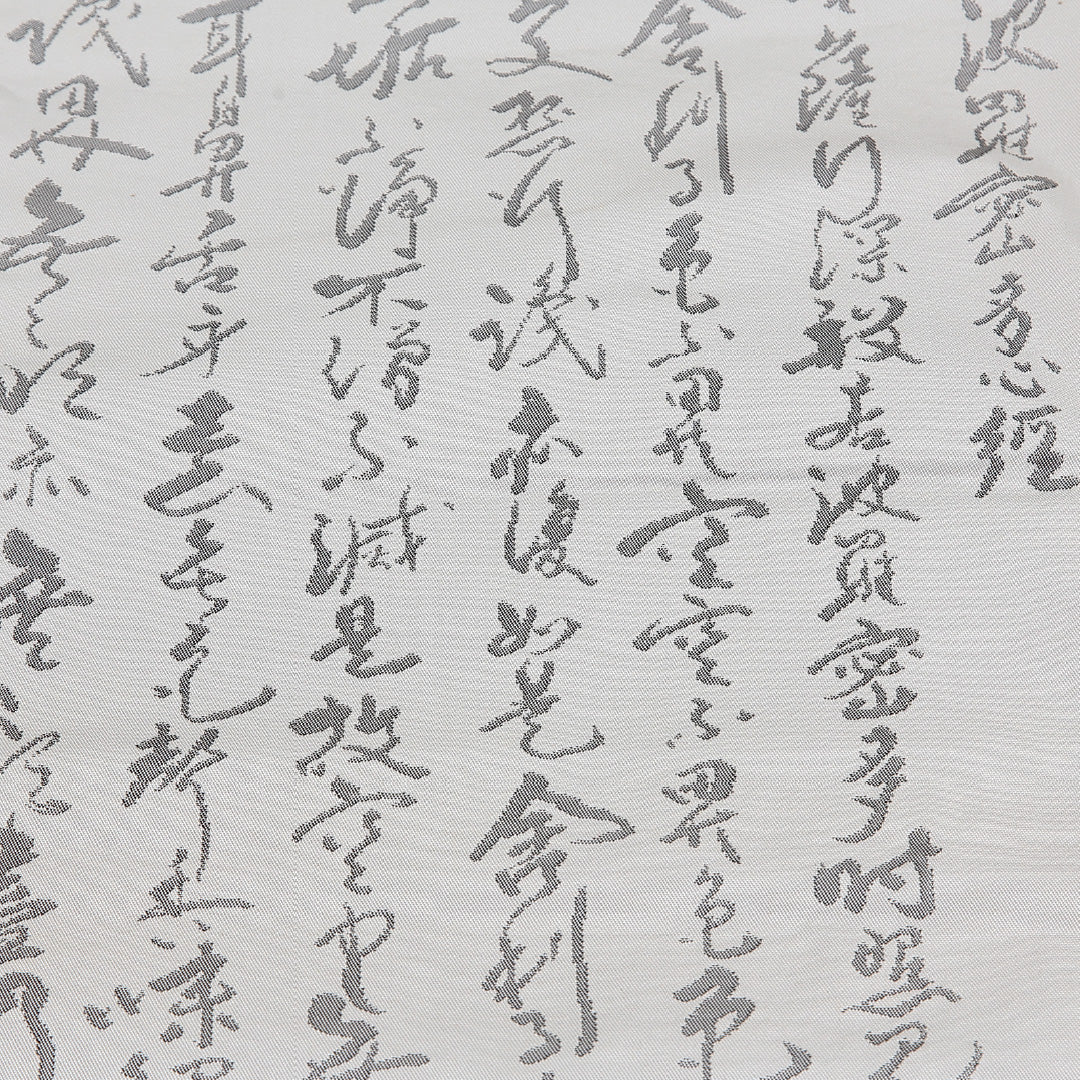 波羅蜜多心經
薩行深般若波羅蜜多時照見
舍利子色不異空空不異色色
受想行識亦復如是舍利子
垢不淨不增不減是故空中無
耳鼻舌身意無色聲香味
識界無々明亦無々明盡